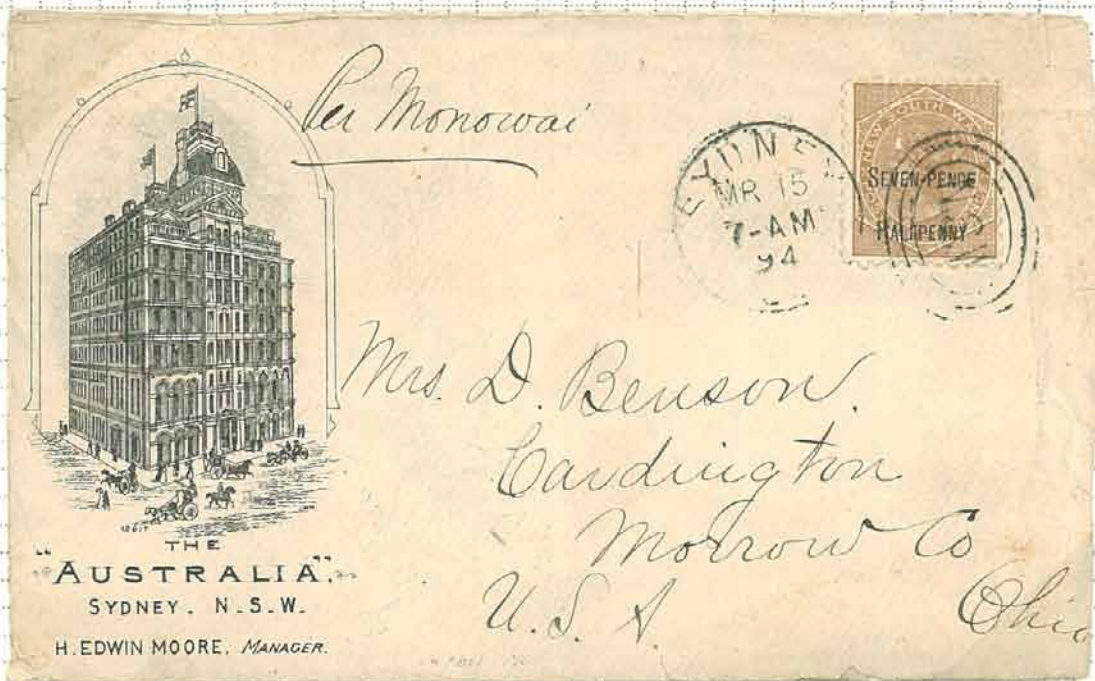 Per Monowai
SYDNEY
MR 15
7-AM
94
NEW SOUTH WA
SEVEN-PENCE
HALFPENNY
Mrs. D. Benson.
Cardington
Morrow Co
Ohio
U.S.A
THE
"AUSTRALIA".
SYDNEY. N.S.W.
H. EDWIN MOORE, MANAGER.